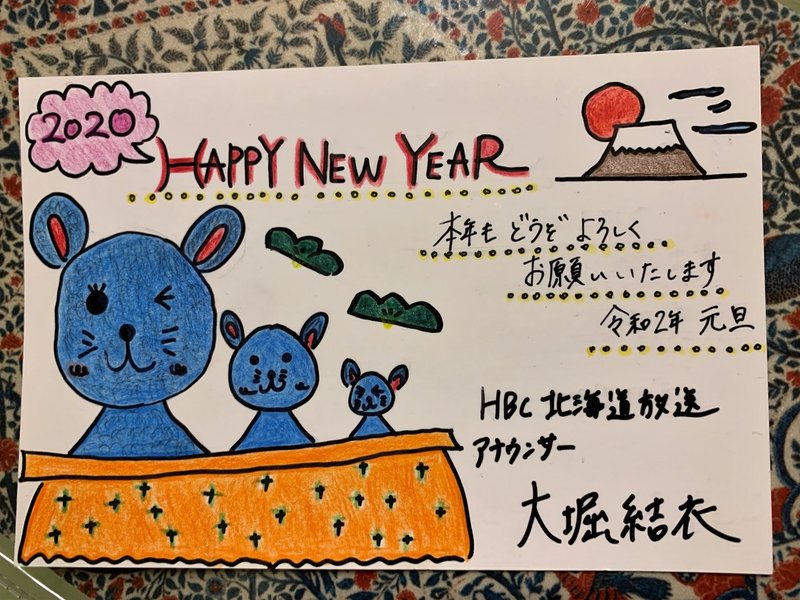 2020
HAPPY NEW YEAR
本年も どうぞ よろしく
お願いいたします
令和2年 元旦
HBC 北海道放送
アナウンサー
大堀結衣